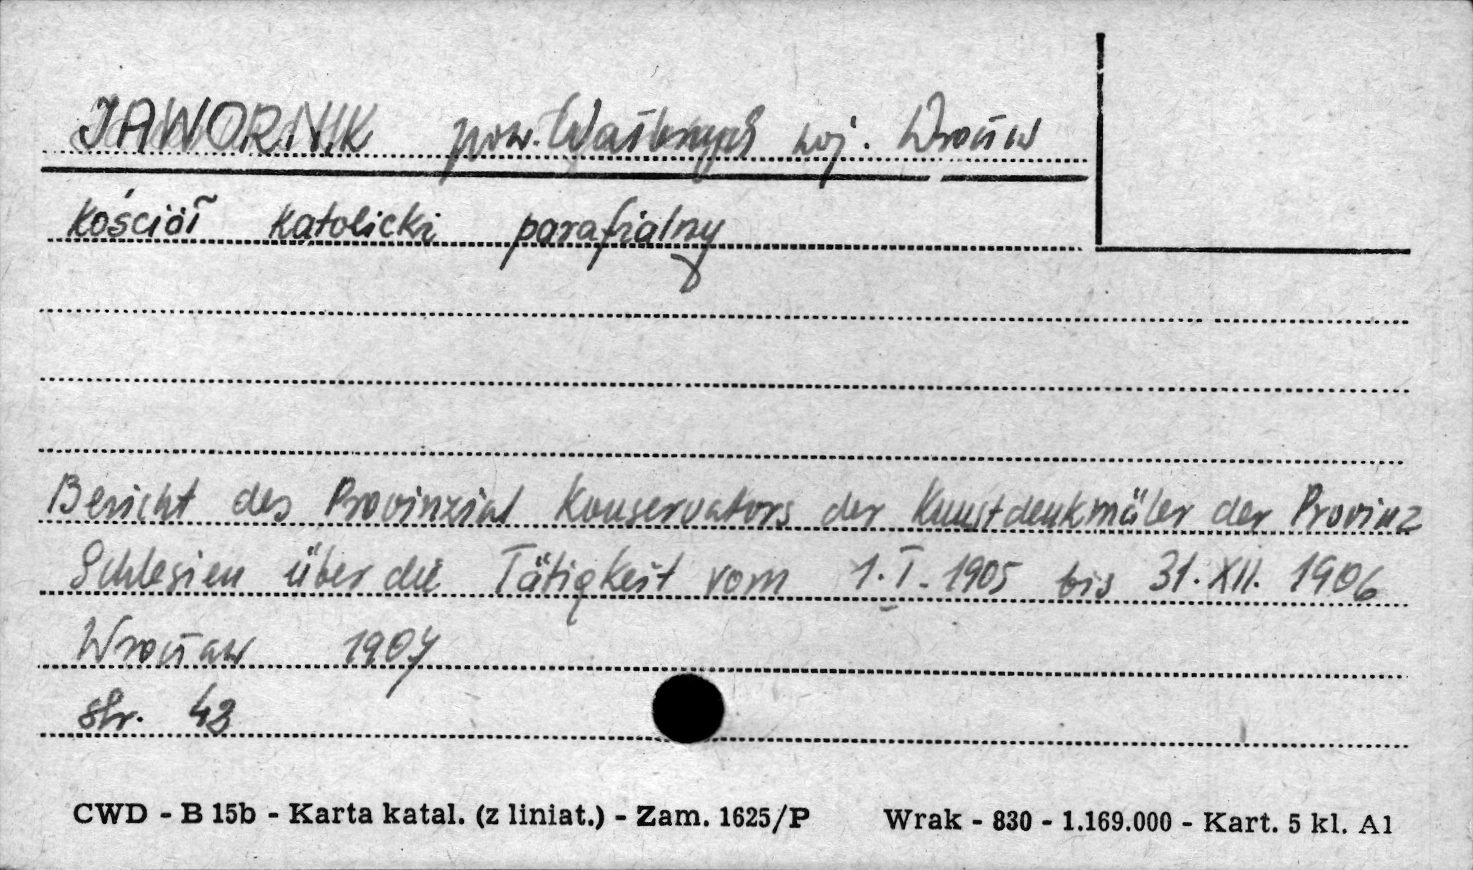 JAWORNIK pow. Wałbrzych woj. Wrocław
kościół katolicki parafialny
Bericht des Provinzial Konservators der Kunstdenkmäler der Provinz
Schlesien über die Tätigkeit vom 1.I.1905 bis 31.XII.1906
Wrocław 1907
str. 43
CWD - B 15b - Karta katal. (z liniat.) - Zam. 1625/P Wrak - 830 - 1.169.000 - Kart. 5 kl. A1